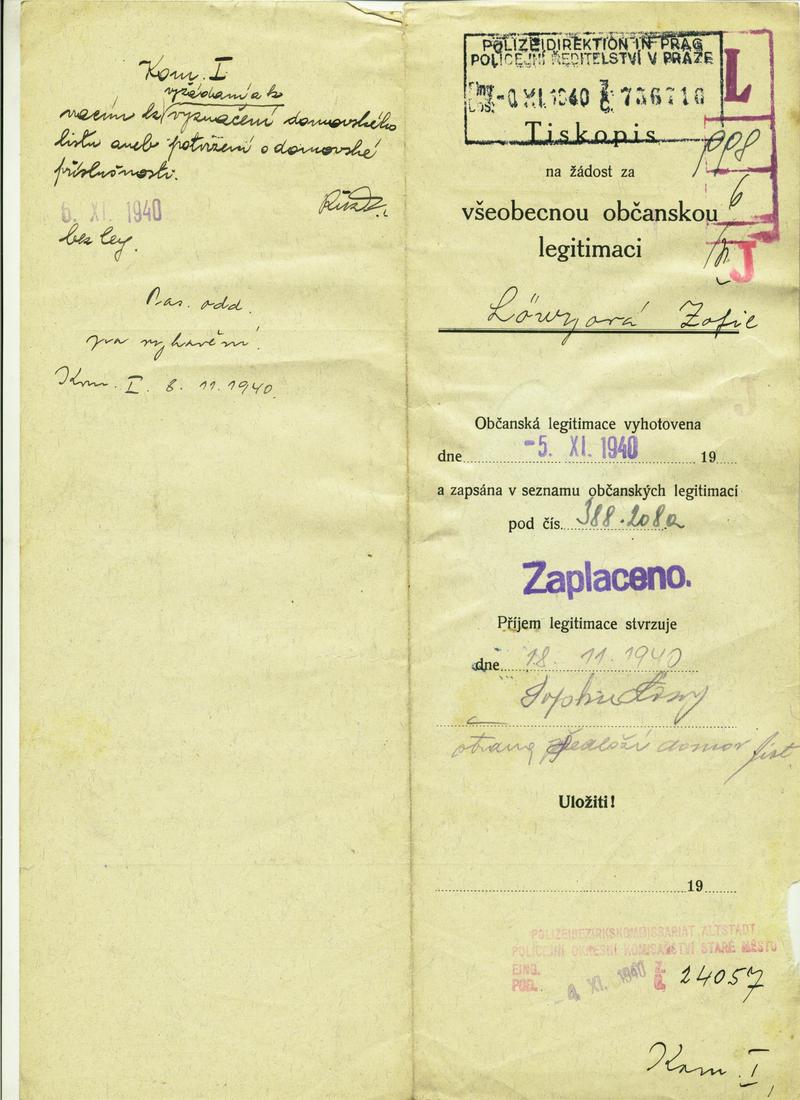 Kom. I
vyžádání a k
k vyznačení domovského
listu aneb potvrzení o domovské
příslušnosti.
6. XI. 1940
bez leg.
Pas. odd.
Kom. I. 8. 11. 1940.
POLIZEIDIREKTION IN PRAG
POLICEJNÍ ŘEDITELSTVÍ V PRAZE
XI. 1940 736716
L
Tiskopis
998
na žádost za
6
všeobecnou občanskou
legitimaci
J
Löwyová Žofie
Občanská legitimace vyhotovena
dne -5. XI. 1940 19
a zapsána v seznamu občanských legitimací
pod čís. 388.208a
Zaplaceno.
Příjem legitimace stvrzuje
dne 18. 11. 1940
strana předloží domov. list
Uložiti!
19
POLIZEIBEZIRKSKOMMISSARIAT ALTSTADT
POLICEJNÍ OKRESNÍ KOMISAŘSTVÍ STARÉ MĚSTO
EING.
POD. XI. 1940 24057
Kom. I,